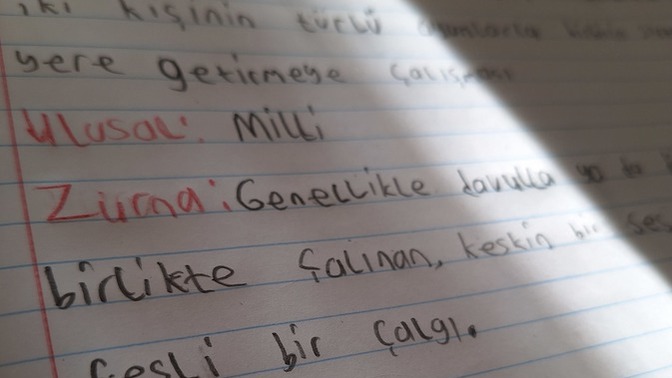 iki kişinin türlü
yere getirmeye çalışması
Ulusal: Milli
Zurna: Genellikle davulla ya da
birlikte çalınan, keskin bir ses
sesli bir çalgı.